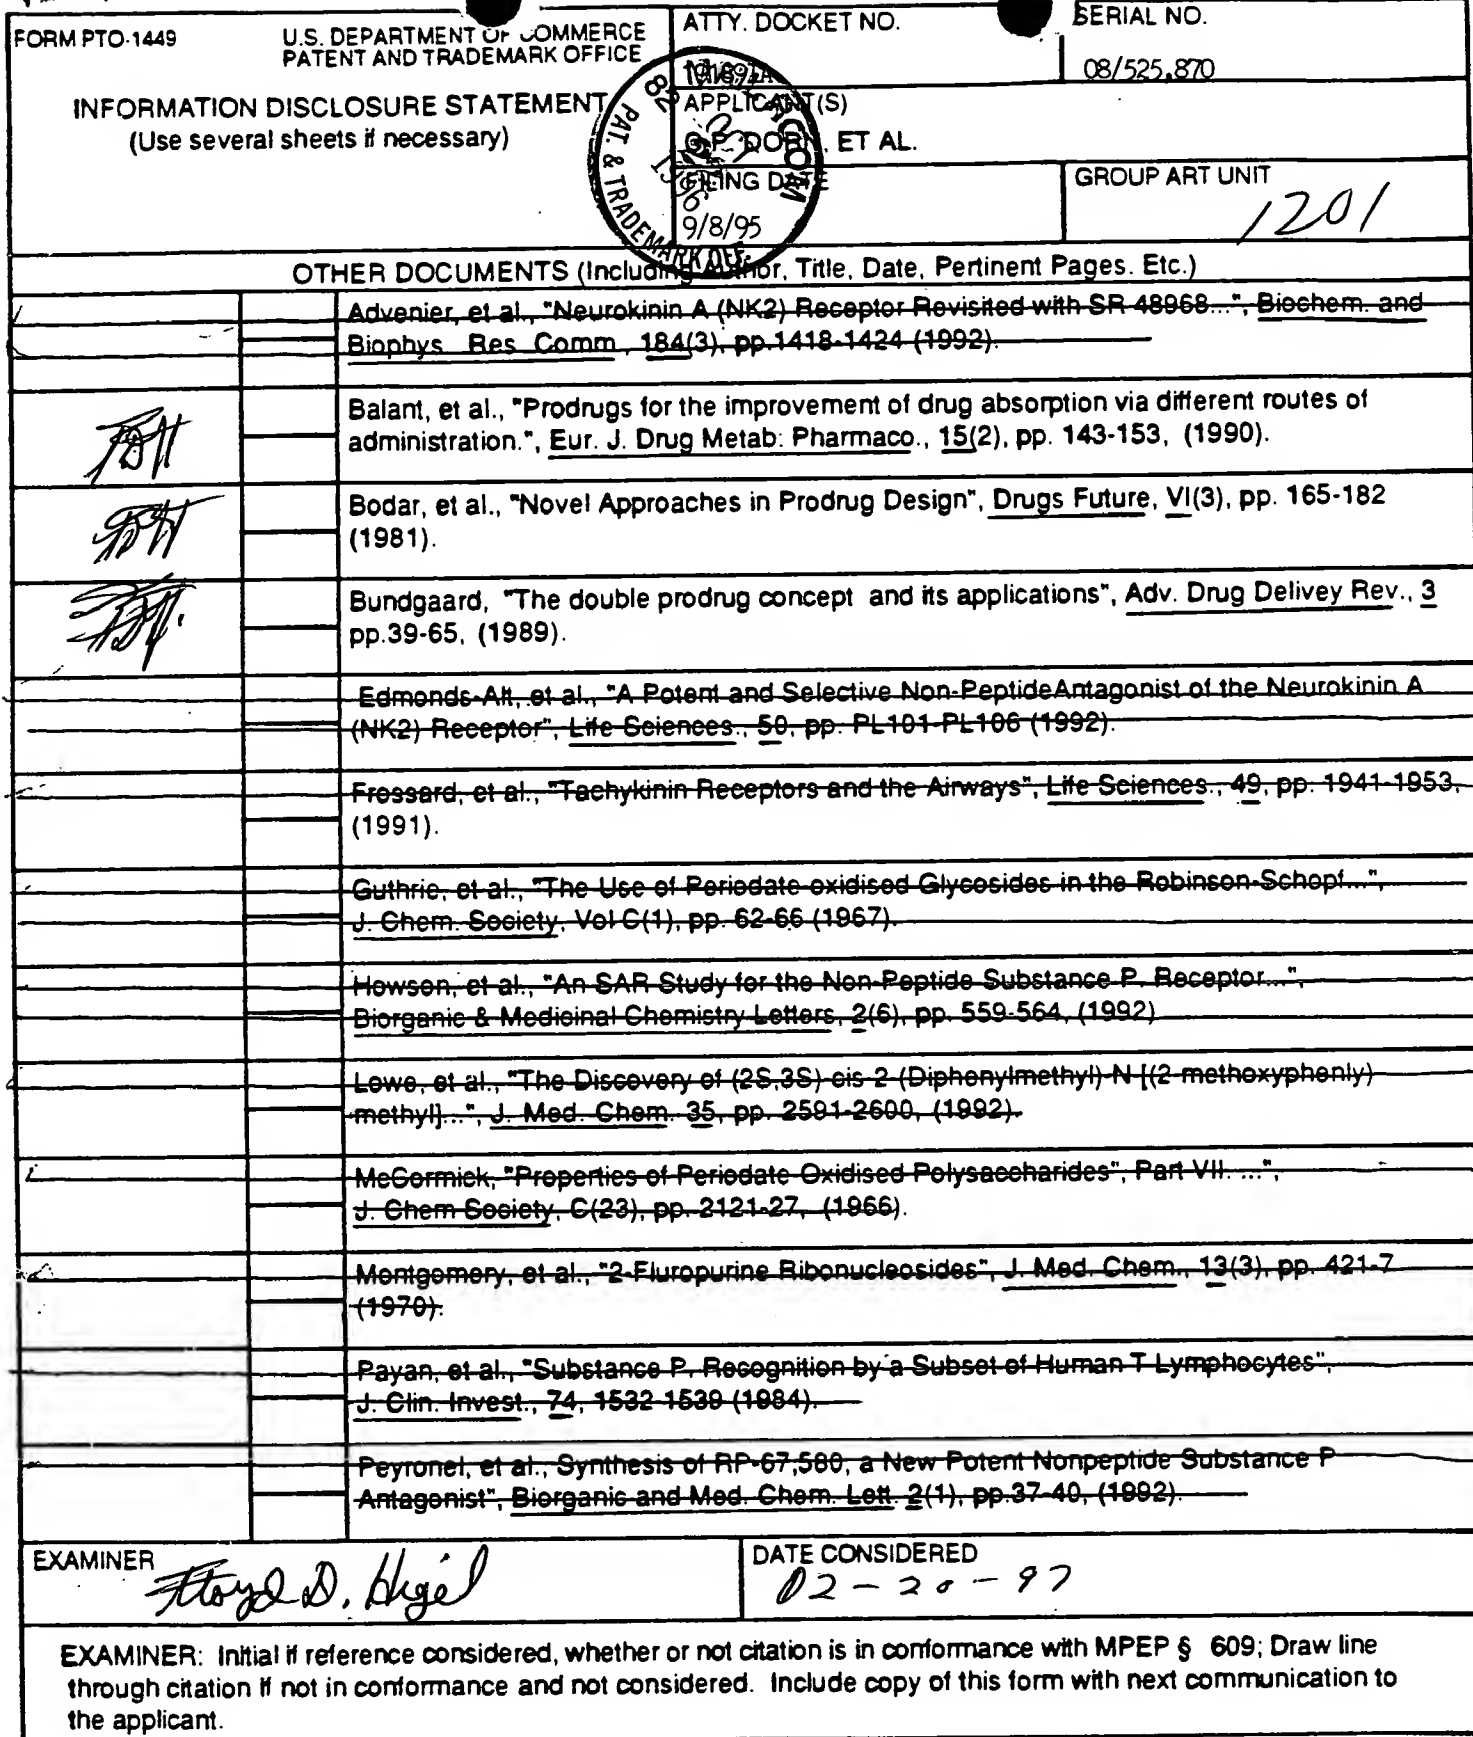 FORM PTO-1449
U.S. DEPARTMENT OF COMMERCE
PATENT AND TRADEMARK OFFICE
ATTY. DOCKET NO.
SERIAL NO.
08/525,870
INFORMATION DISCLOSURE STATEMENT
(Use several sheets if necessary)
APPLICANT(S)
C.P. DORN, ET AL.
FILING DATE
9/8/95
GROUP ART UNIT
1201
PAT. & TRADEMARK OFF.
OTHER DOCUMENTS (Including Author, Title, Date, Pertinent Pages. Etc.)
Advenier, et al., "Neurokinin A (NK2) Receptor Revisited with SR 48968...", Biochem. and
Biophys Res Comm, 184(3), pp.1418-1424 (1992).
FDH
Balant, et al., "Prodrugs for the improvement of drug absorption via different routes of
administration.", Eur. J. Drug Metab: Pharmaco., 15(2), pp. 143-153, (1990).
FDH
Bodar, et al., "Novel Approaches in Prodrug Design", Drugs Future, VI(3), pp. 165-182
(1981).
FDH
Bundgaard, "The double prodrug concept and its applications", Adv. Drug Delivey Rev., 3
pp.39-65, (1989).
Edmonds-Alt, et al., "A Potent and Selective Non-PeptideAntagonist of the Neurokinin A
(NK2) Receptor", Life Sciences., 50, pp. PL101-PL106 (1992).
Frossard, et al., "Tachykinin Receptors and the Airways", Life Sciences., 49, pp. 1941-1953,
(1991).
Guthrie, et al., "The Use of Periodate-oxidised Glycosides in the Robinson-Schopf...",
J. Chem. Society, Vol C(1), pp. 62-66 (1967).
Howson, et al., "An SAR Study for the Non-Peptide Substance P. Receptor...",
Biorganic & Medicinal Chemistry Letters, 2(6), pp. 559-564, (1992)
Lowe, et al., "The Discovery of (2S,3S)-cis-2-(Diphenylmethyl)-N-[(2-methoxyphenly)
-methyl]...", J. Med. Chem. 35, pp. 2591-2600, (1992).
McCormick, "Properties of Periodate-Oxidised Polysaccharides", Part VII. ...",
J. Chem Society, C(23), pp. 2121-27, (1966).
Montgomery, et al., "2-Fluropurine Ribonucleosides", J. Med. Chem., 13(3), pp. 421-7
(1970).
Payan, et al., "Substance P. Recognition by a Subset of Human T Lymphocytes",
J. Clin. Invest., 74, 1532-1539 (1984).
Peyronel, et al., Synthesis of RP-67,580, a New Potent Nonpeptide Substance P
Antagonist", Biorganic and Med. Chem. Lett. 2(1), pp.37-40, (1992).
EXAMINER
Floyd D. Higel
DATE CONSIDERED
02-20-97
EXAMINER: Initial if reference considered, whether or not citation is in conformance with MPEP § 609; Draw line
through citation if not in conformance and not considered. Include copy of this form with next communication to
the applicant.